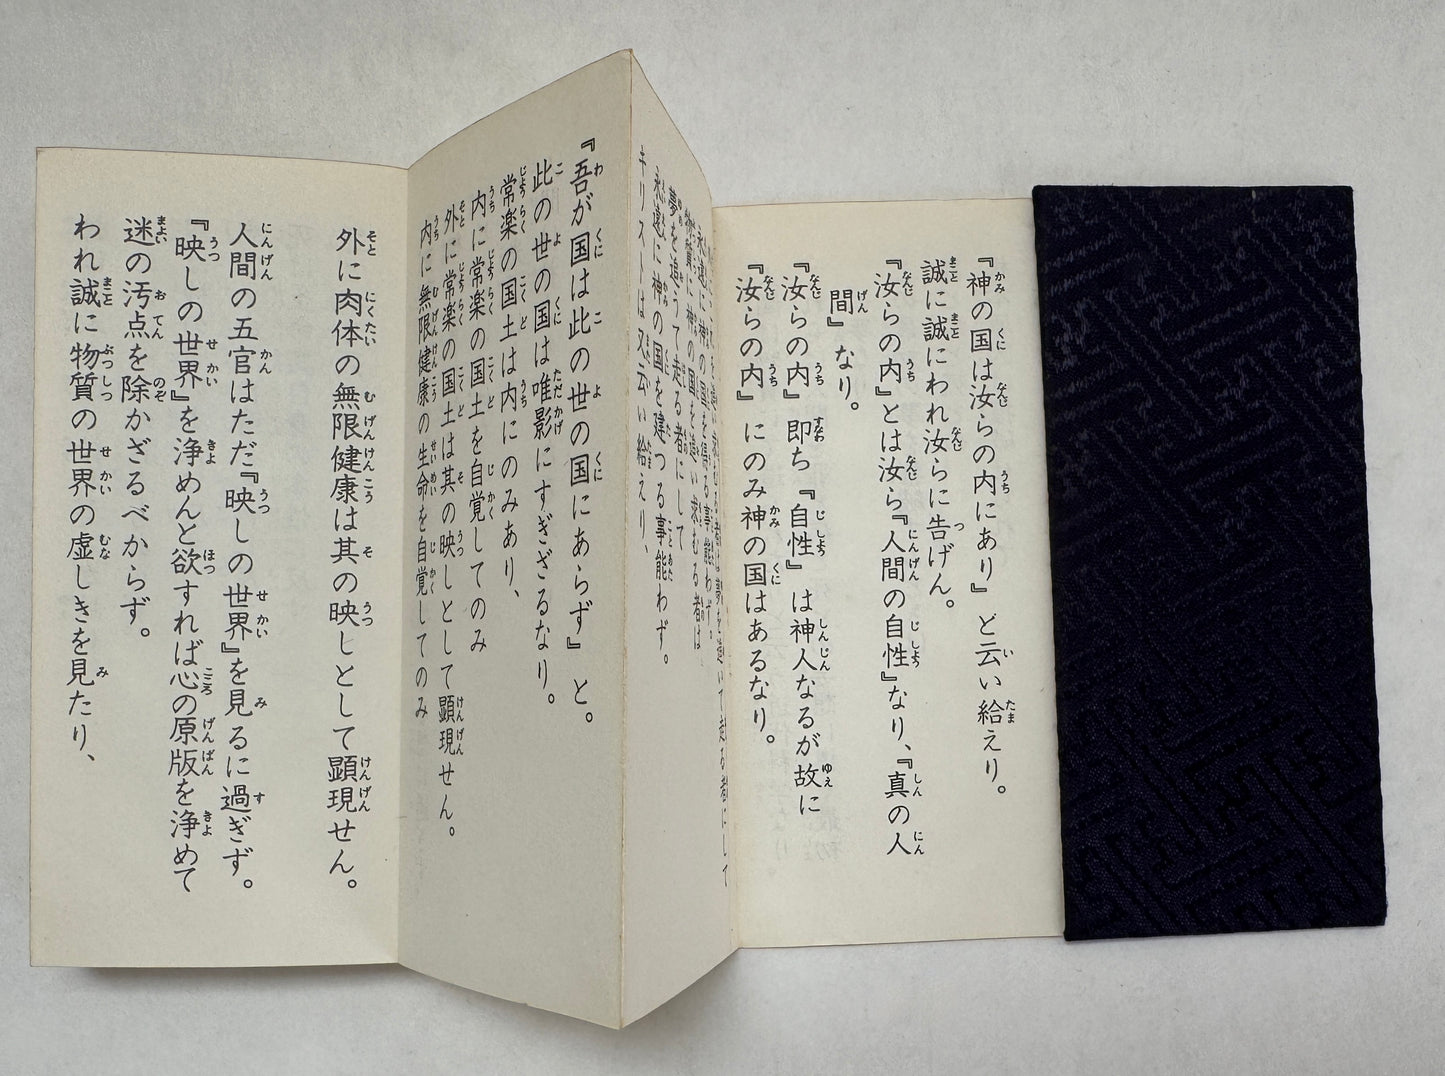 『神の国は汝らの内にあり』と云い給えり。
誠に誠にわれ汝らに告げん。
『汝らの内』とは汝ら『人間の自性』なり、『真の人
間』なり。
『汝らの内』即ち『自性』は神人なるが故に
『汝らの内』にのみ神の国はあるなり。
を追い求むる者は夢を追いて走る者にして
永遠に神の国を得る事能わず。
物質に神の国を追い求むる者は
夢を追うて走る者にして
永遠に神の国を建つる事能わず。
キリストは又云い給えり、
『吾が国は此の世の国にあらず』と。
此の世の国は唯影にすぎざるなり。
常楽の国土は内にのみあり、
内に常楽の国土を自覚してのみ
外に常楽の国土は其の映しとして顕現せん。
内に無限健康の生命を自覚してのみ
外に肉体の無限健康は其の映しとして顕現せん。
人間の五官はただ『映しの世界』を見るに過ぎず。
『映しの世界』を浄めんと欲すれば心の原版を浄めて
迷の汚点を除かざるべからず。
われ誠に物質の世界の虚しきを見たり、